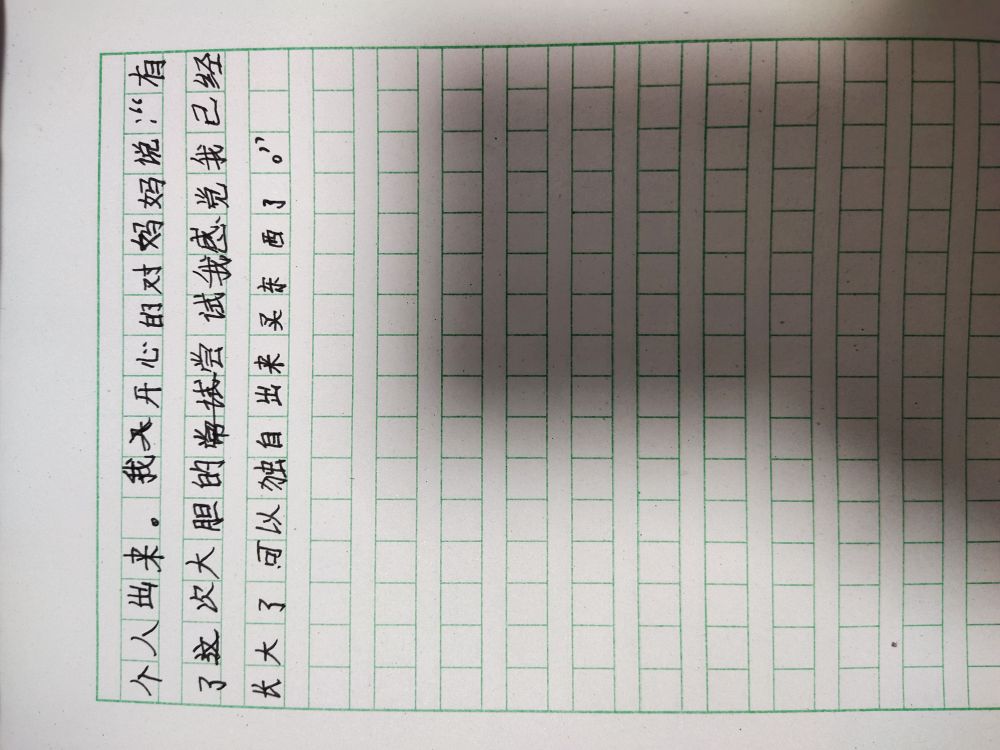 个人出来。我开心的对妈妈说：“有
了这次大胆的尝试我感觉我已经
长大了可以独自出来买东西了。”